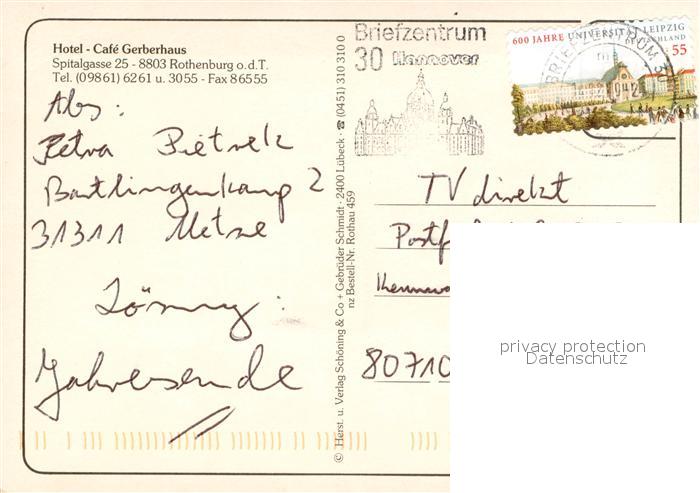 Hotel - Café Gerberhaus
Spitalgasse 25 - 8803 Rothenburg o.d.T.
Tel. (09861) 6261 u. 3055 - Fax 86555
Abs:
Petra Pietrek
Bartlingerkamp 2
31311 Uetze
Lösung:
Jahresende
© Herst. u. Verlag Schöning & Co + Gebrüder Schmidt · 2400 Lübeck · ☎ (0451) 310 310 0
nz Bestell-Nr. Rothau 459
Briefzentrum
30 Hannover
600 JAHRE UNIVERSITÄT LEIPZIG
DEUTSCHLAND
55
BRIEFZENTRUM 30
TV direkt
Postf
Kennwo
80710
privacy protection
Datenschutz